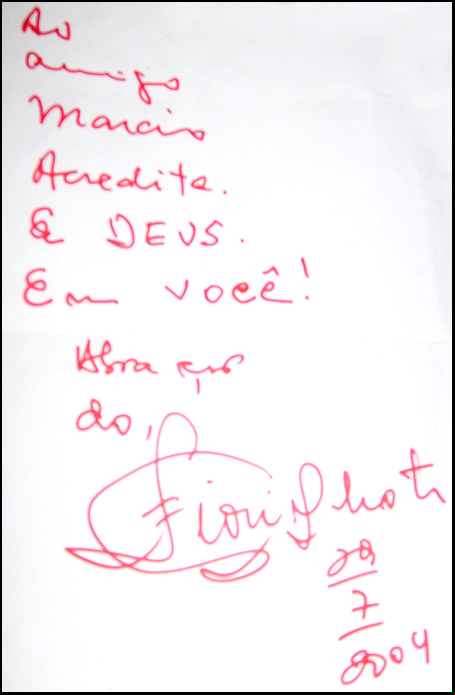 Ao
amigo
Marcio
Acredite.
E DEUS.
Em você!
Abraços
do,
Fiori Ghoti
29
7
2004